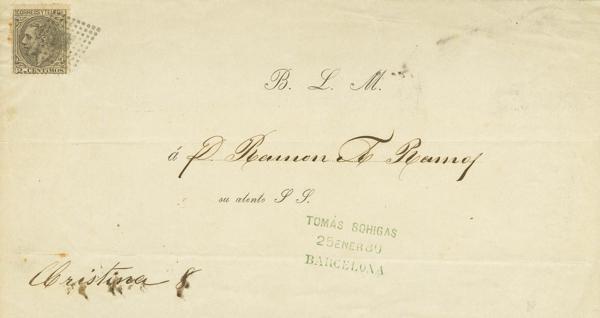 CORREOS Y TELEGS
2 CENTIMOS
B. L. M.
á D. Ramon A Ramos
su atento S S.
TOMÁS SOHIGAS
25 ENER 80
BARCELONA
Cristina 8